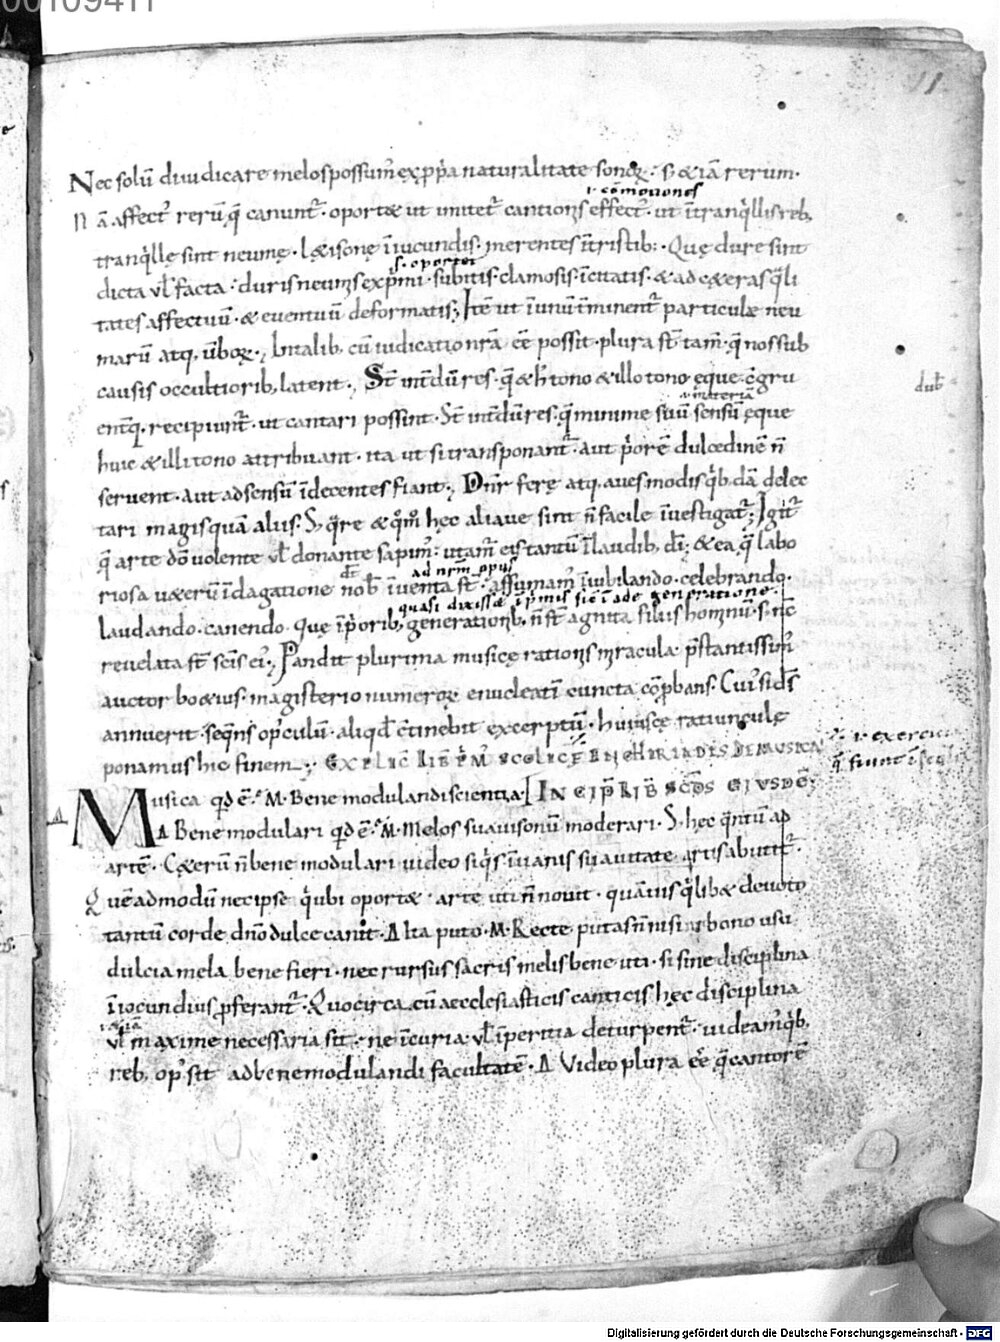 00109411
11
Nec solū diiudicare melos possum᷑ ex p̄pa naturalitate sonoꝝ · s; & iā rerum ·
i· cōmotiones
Nā affect᷑ rerū q̄ canunt᷑ · oport& ut imitet᷑ cantionis effect᷑ · ut ītranq̇llis reb;
tranq̇llę sint neumę · l&isonę īiucundis · merentes īntristib; · Quę dure sint
s· oportet
dicta ul̄ facta · duris neumis exp̄mi · subitis · clamosis · īcitatis · & ad c&eras q̇li
tates affectuū · & euentuū deformatis; Itē ut īunū t̄minent᷑ particulæ neu
marū atq; ūboꝝ · In talib; cū iudicatio nr̄a eē possit · plura st̄ tam̄ · q̄ nos sub
causis occultiorib; latent · St̄ int̄dū res · q̄ & h̄ tono & illo tono eque c̄gru
dub̄
ent̄q; recipiunt᷑ · ut cantari possint · St̄ int̄dū res · q̄ minime suū sensū ęque
i· materia
huic & illi tono attribuant · ita ut si transponant᷑ · aut p̄orē dulcedinē n̄
seruent · aut ad sensū īdecentes fiant · Dn̄r ferę atq; aues modis q̇b;dā delec
tari magis quā aliis · S; q̄re & q̊m̊ hęc aliaue sint n̄ facile īuestigat᷑; Igit᷑
q̄ arte dō uolente ul̄ donante sapim᷑ · utam᷑ eis tantū ī laudib; dī · & ea q̄ labo
ad nr̄m opus
riosa u&erū īdagatione nob̄ īuenta st̄ · assumam᷑ īiubilando · celebrando ·
quasi dixiss& īp̄mis sic ī ade generatione
laudando · canendo · Quę īp̄orib; generationib; n̄ st̄ agnita filiis hominū · s; nc̄
reuelata st̄ scīs ei᷑ · Pandit plurima musicę rationis miracula p̄stantissim᷑
auctor bo&ius · magisterio numeroꝝ enucleatī cuncta cōprobans · Cui᷑ si ds̄
annuerit · seq̄ns op᷑culū · aliqd̄ c̄tinebit excerptū · huiuscę ratiunculę
ponamus hic finem · EXPLIC̄ LIB̄ P̄M᷑ SCOLICE ENCHIRIADIS DE MUSICA
Musica qd̄ ē · M· Bene modulandi scientia · INCIP̄ LIB̄ SC̄DS EIUSDĒ;
Δ Bene modulari qd̄ ē · M· Melos suauisonū moderari · S; hęc q̄ntū ad
artē · C&erū n̄ bene modulari uideo siq̇s īuanis suauitate artis abutit᷑ ·
Quēadmodū nec ipse q̇ ubi oport& arte uti n̄ nouit · quāuis q̇lib& deuoto
tantū corde dn̄o dulce canit · Δ Ita puto · M· Recte putas n̄ nisi bono usu
dulcia mela bene fieri · nec rursus sacris melis bene uti · si sine disciplina
īiocundius p̄ferant᷑ · Quocirca cū aecclesiasticis canticis hęc disciplina
ul̄ maxime necessaria sit · ne īcuria ul̄ īperitia deturpent᷑ · uideam᷑ q̇b;
reb; op᷑ sit ad bene modulandi facultatē · Δ Video plura eē q̄ cantorē
Digitalisierung gefördert durch die Deutsche Forschungsgemeinschaft - DFG